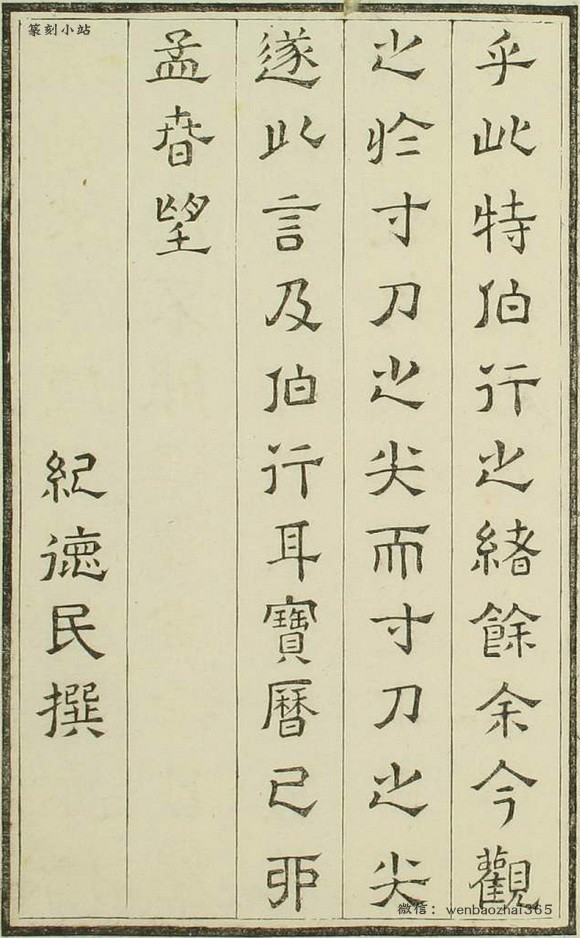 篆刻小站
乎此特伯行之緒餘余今觀
之於寸刀之尖而寸刀之尖
遂此言及伯行耳寶曆己卯
孟春望
紀德民撰
微信：wenbaozhai365